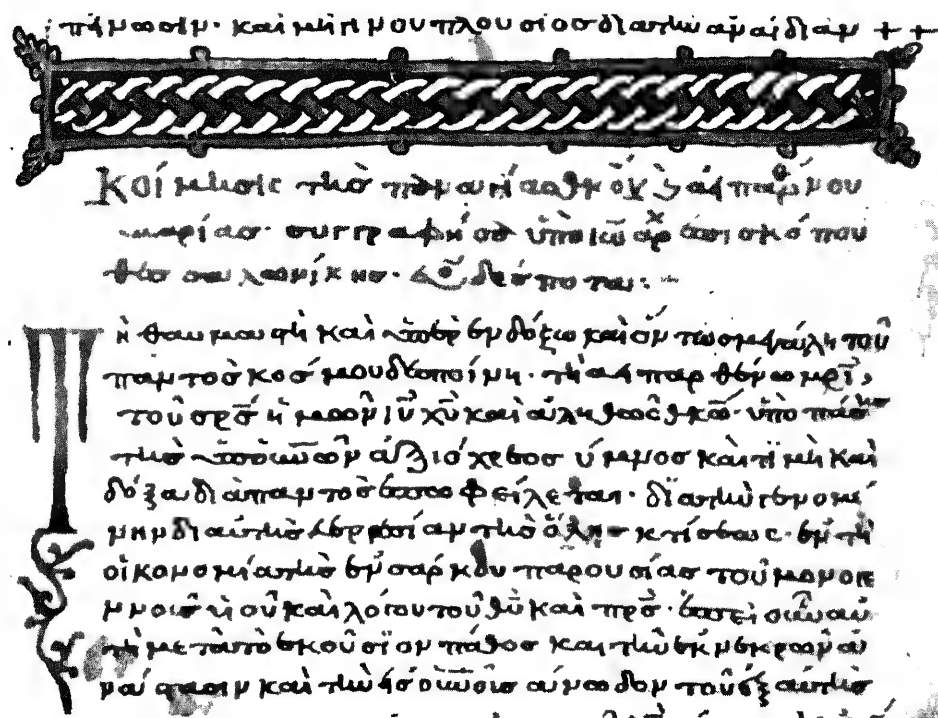 καὶ μή τι μου πλουσιοσ διὰ τὴν ἀναίδιαν + +
Κοίμησισ τῆσ παναγίασ θκου καὶ ἀειπαρθ́νου
μαρίασ· συγγραφεῖσα ὑπὸ ιω ἀρχ επισκόπου
θεσσαλονίκησ· ευ δέσποτα: +
Τῆ θαυμαστῆ καὶ ὑπερενδόξω καὶ ὄντωσ μεγάλη τοῦ
παντὸσ κόσμου δεσποίνη· τῆ ἀειπαρθένω μρὶ,
τοῦ σρσ ἡμῶν ιυ χυ καὶ ἀληθῶσ θκω· ὑπὸ πάσησ
τῆσ ὑπ' ουνὸν ἀξιόχρεοσ ὕμνοσ καὶ τϊμὴ καὶ
δόξα διὰ παντὸσ ἐποφείλεται· δϊὰ τὴν γενομέ
νην δι αὐτῆσ ἐυεργεσίαν τῆσ ὅλησ κτίσεωσ· ἐν τῆ
οἰκονομία τῆσ ἐνσάρκου παρουσίασ τοῦ μονογε
νουσ ϋἱοῦ καὶ λόγου τοῦ θυ καὶ πρσ· ἐπεὶ οὖν αὐ
τὴ μετὰ τὸ ἑκούσϊον πάθοσ καὶ τὴν ἐκ νεκρῶν ἀ
νάστασιν καὶ τὴν εἰσ οὐνοὺσ ἄνοδον τοῦ ἐξ αὐτῆσ